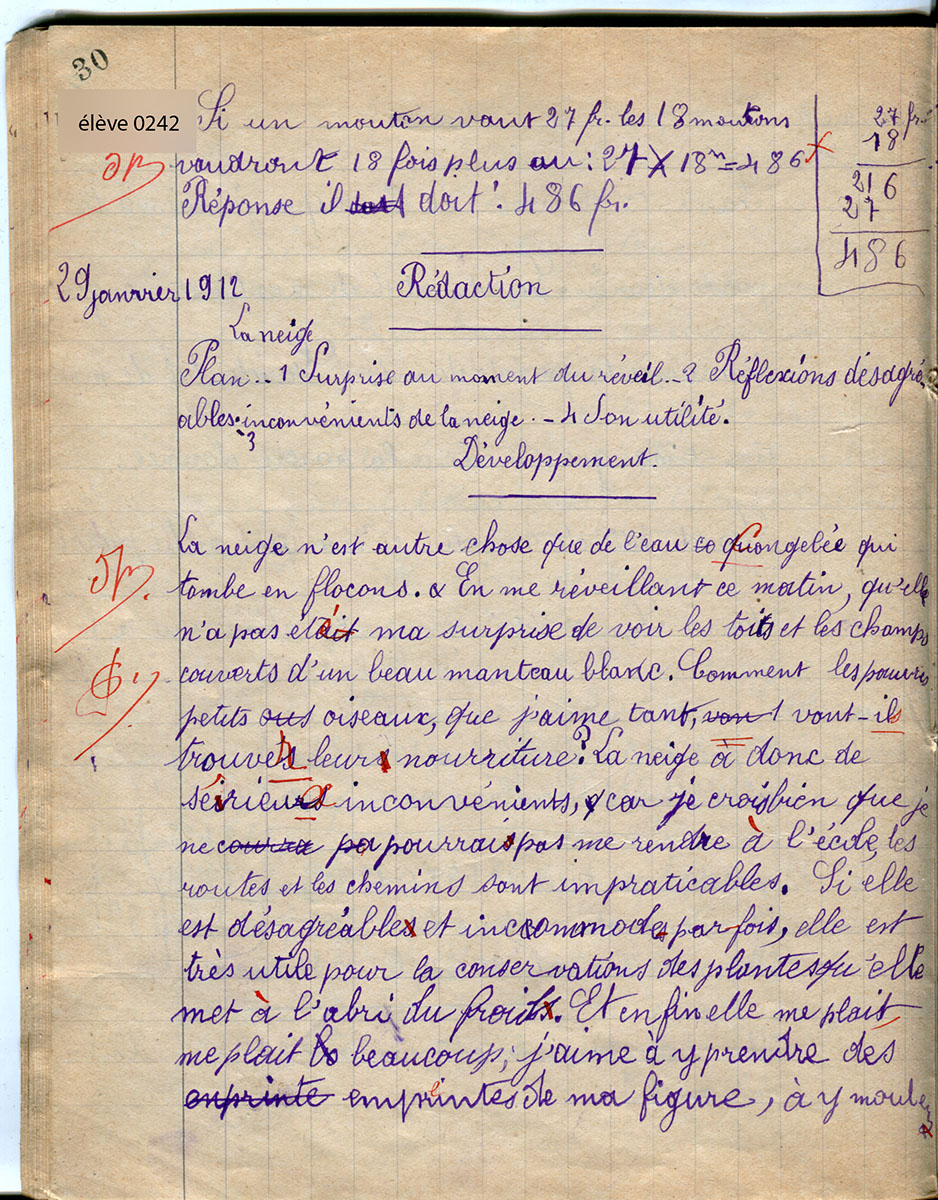 30
élève 0242
Si un mouton vaut 27 fr. les 18 moutons
vaudront 18 fois plus ou : 27 X 18 = 486
Réponse il doit : 486 fr.
27 fr.
18
216
27
486
29 janvier 1912
Rédaction
La neige
Plan .. 1 Surprise au moment du réveil. - 2 Réflexions désagré-
ables. 3 inconvénients de la neige. - 4 Son utilité.
Développement.
La neige n'est autre chose que de l'eau congelée qui
tombe en flocons. En me réveillant ce matin, qu'elle
n'a pas été ma surprise de voir les toits et les champs
couverts d'un beau manteau blanc. Comment les pauvres
petits oiseaux, que j'aime tant, vont-ils
trouver leur nourriture? La neige à donc de
sérieux inconvénients, car je crois bien que je
ne pourrais pas me rendre à l'école, les
routes et les chemins sont impraticables. Si elle
est désagréable et incommode parfois, elle est
très utile pour la conservations des plantes qu'elle
met à l'abri du froid. Et enfin elle me plait
me plait beaucoup; j'aime à y prendre des
empreintes de ma figure, à y mouler